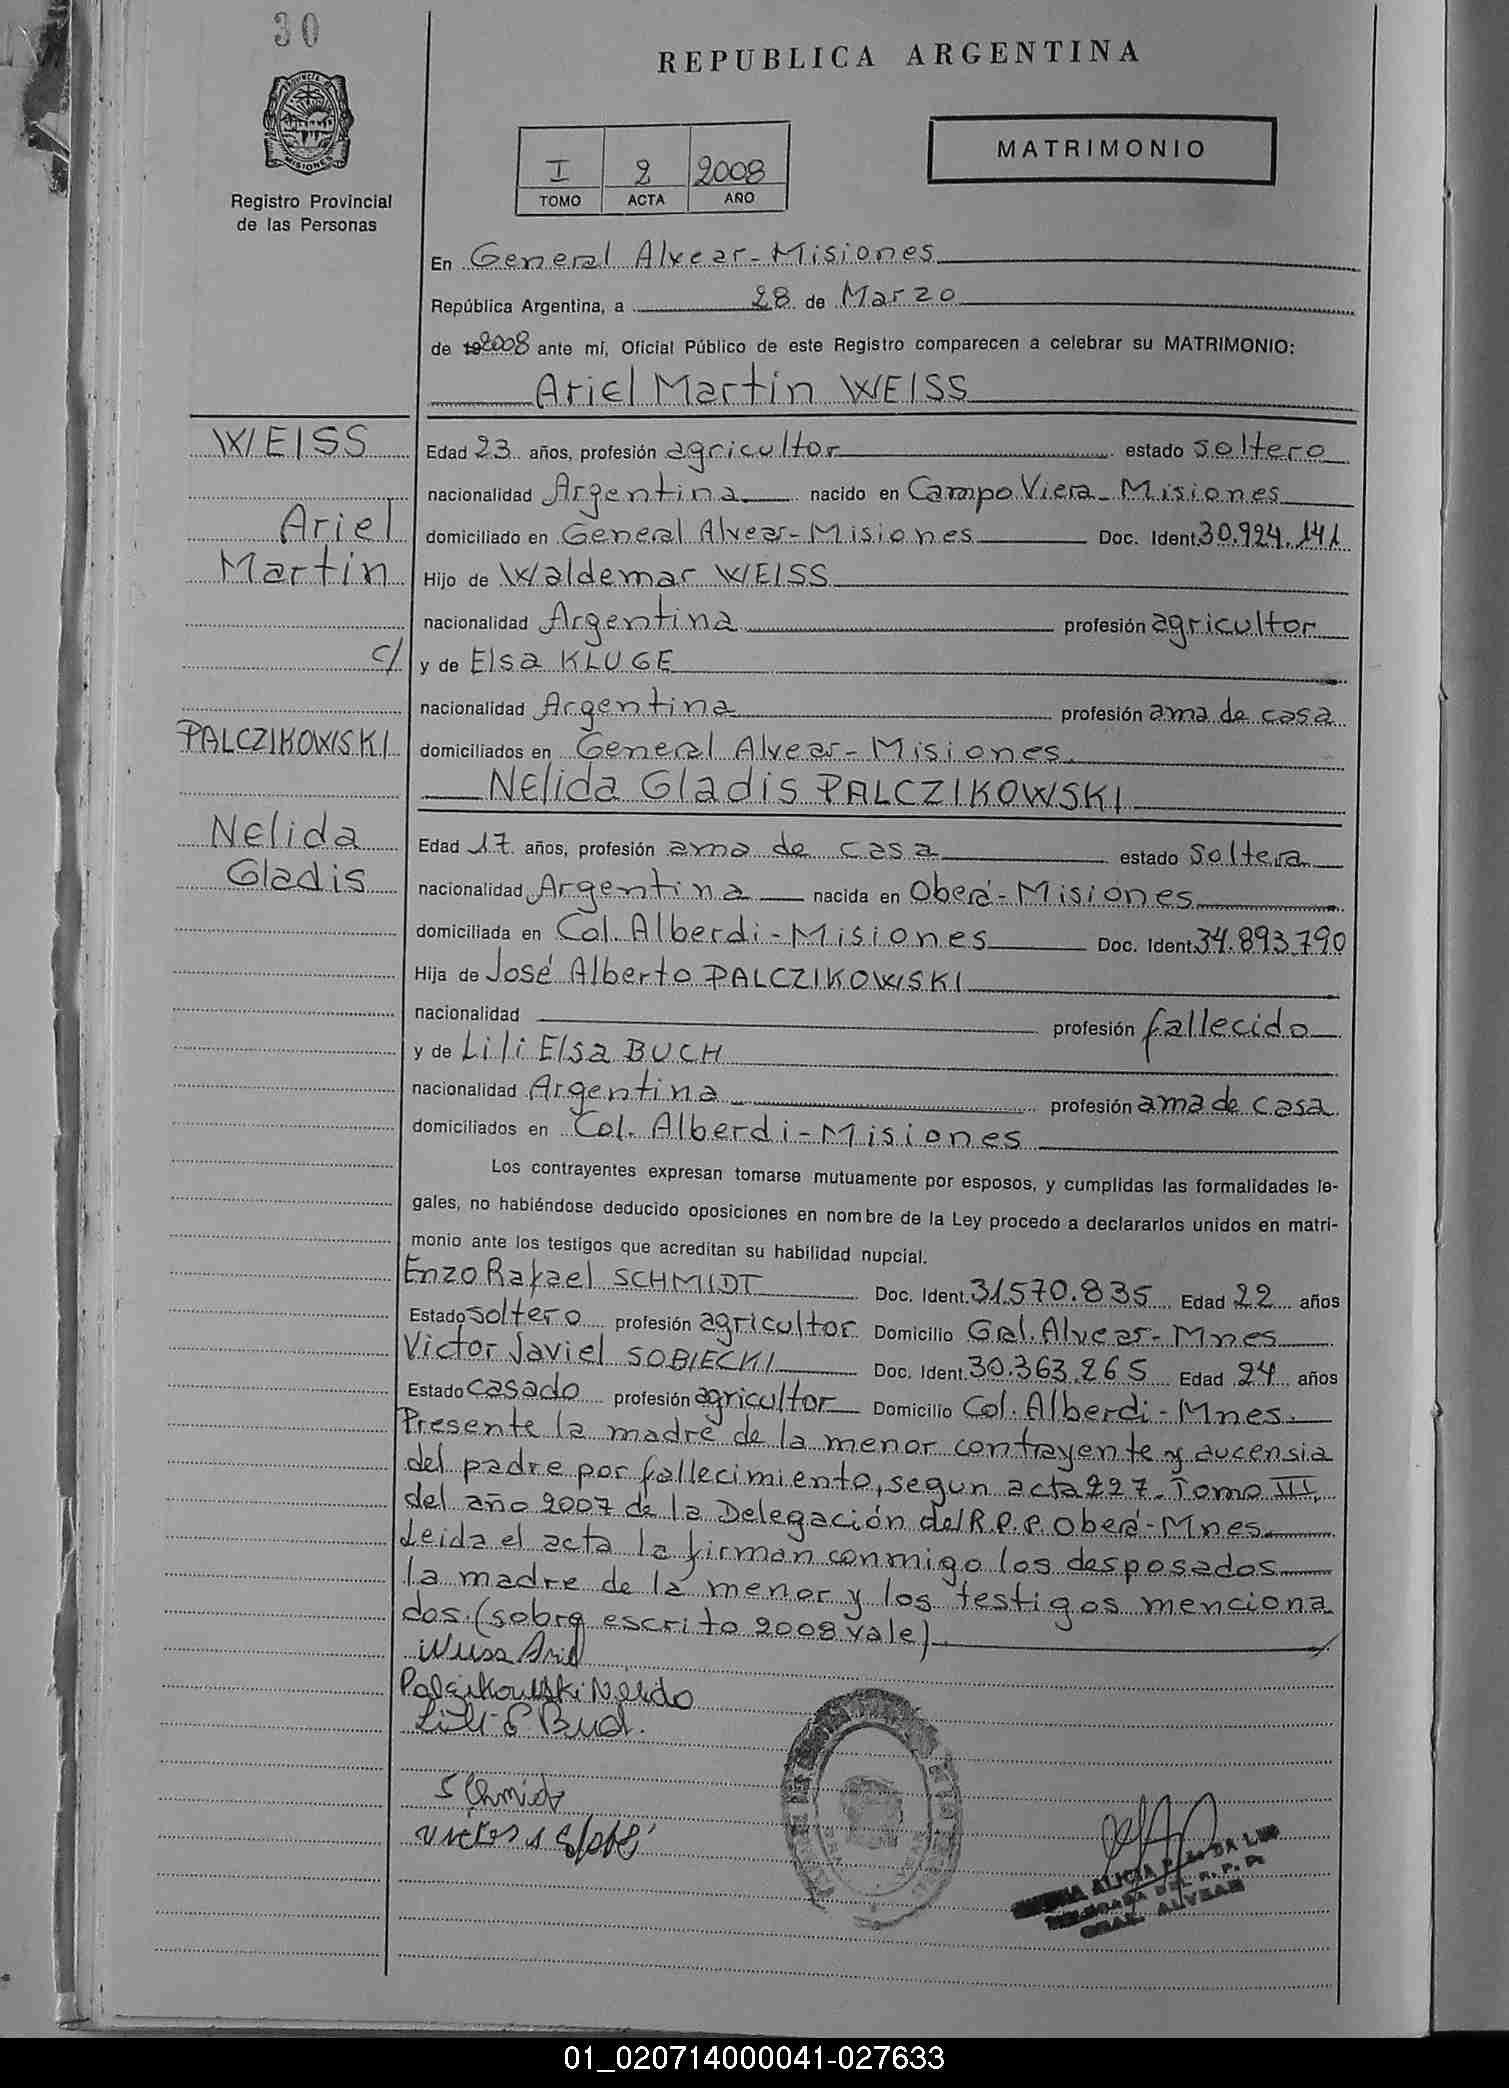 30
REPUBLICA ARGENTINA
MISIONES
Registro Provincial
de las Personas
I 2 2008
TOMO ACTA AÑO
MATRIMONIO
En General Alvear - Misiones
República Argentina, a 28 de Marzo
de 192008 ante mí, Oficial Público de este Registro comparecen a celebrar su MATRIMONIO:
Ariel Martin WEISS
WEISS
Ariel
Martin
c/
PALCZIKOWSKI
Nelida
Gladis
Edad 23 años, profesión agricultor estado soltero
nacionalidad Argentina nacido en Campo Viera - Misiones
domiciliado en General Alvear - Misiones Doc. Ident. 30.924.141
Hijo de Waldemar WEISS
nacionalidad Argentina profesión agricultor
y de Elsa KLUGE
nacionalidad Argentina profesión ama de casa
domiciliados en General Alvear - Misiones.
Nelida Gladis PALCZIKOWSKI
Edad 17 años, profesión ama de casa estado soltera
nacionalidad Argentina nacida en Oberá - Misiones
domiciliada en Col. Alberdi - Misiones Doc. Ident. 34.893.790
Hija de José Alberto PALCZIKOWSKI
nacionalidad profesión fallecido
y de Lili Elsa BUCH
nacionalidad Argentina profesión ama de casa
domiciliados en Col. Alberdi - Misiones
Los contrayentes expresan tomarse mutuamente por esposos, y cumplidas las formalidades le-
gales, no habiéndose deducido oposiciones en nombre de la Ley procedo a declararlos unidos en matri-
monio ante los testigos que acreditan su habilidad nupcial.
Enzo Rafael SCHMIDT Doc. Ident. 31.570.835 Edad 22 años
Estado soltero profesión agricultor Domicilio Gral. Alvear - Mnes
Victor Javiel SOBIECKI Doc. Ident. 30.363.265 Edad 24 años
Estado casado profesión agricultor Domicilio Col. Alberdi - Mnes.
Presente la madre de la menor contrayente y aucensia
del padre por fallecimiento, segun acta 227 - Tomo III
del año 2007 de la Delegación del R.P.P. Oberá - Mnes
Leida el acta la firman conmigo los desposados
la madre de la menor y los testigos menciona
dos. (sobre escrito 2008 vale).
Ariel
Palczikowski Nelida
Lili E Buch.
Schmidt
ALICIA DA LUZ
DELEGADA DEL R. P. P.
GRAL. ALVEAR
01_020714000041-027633